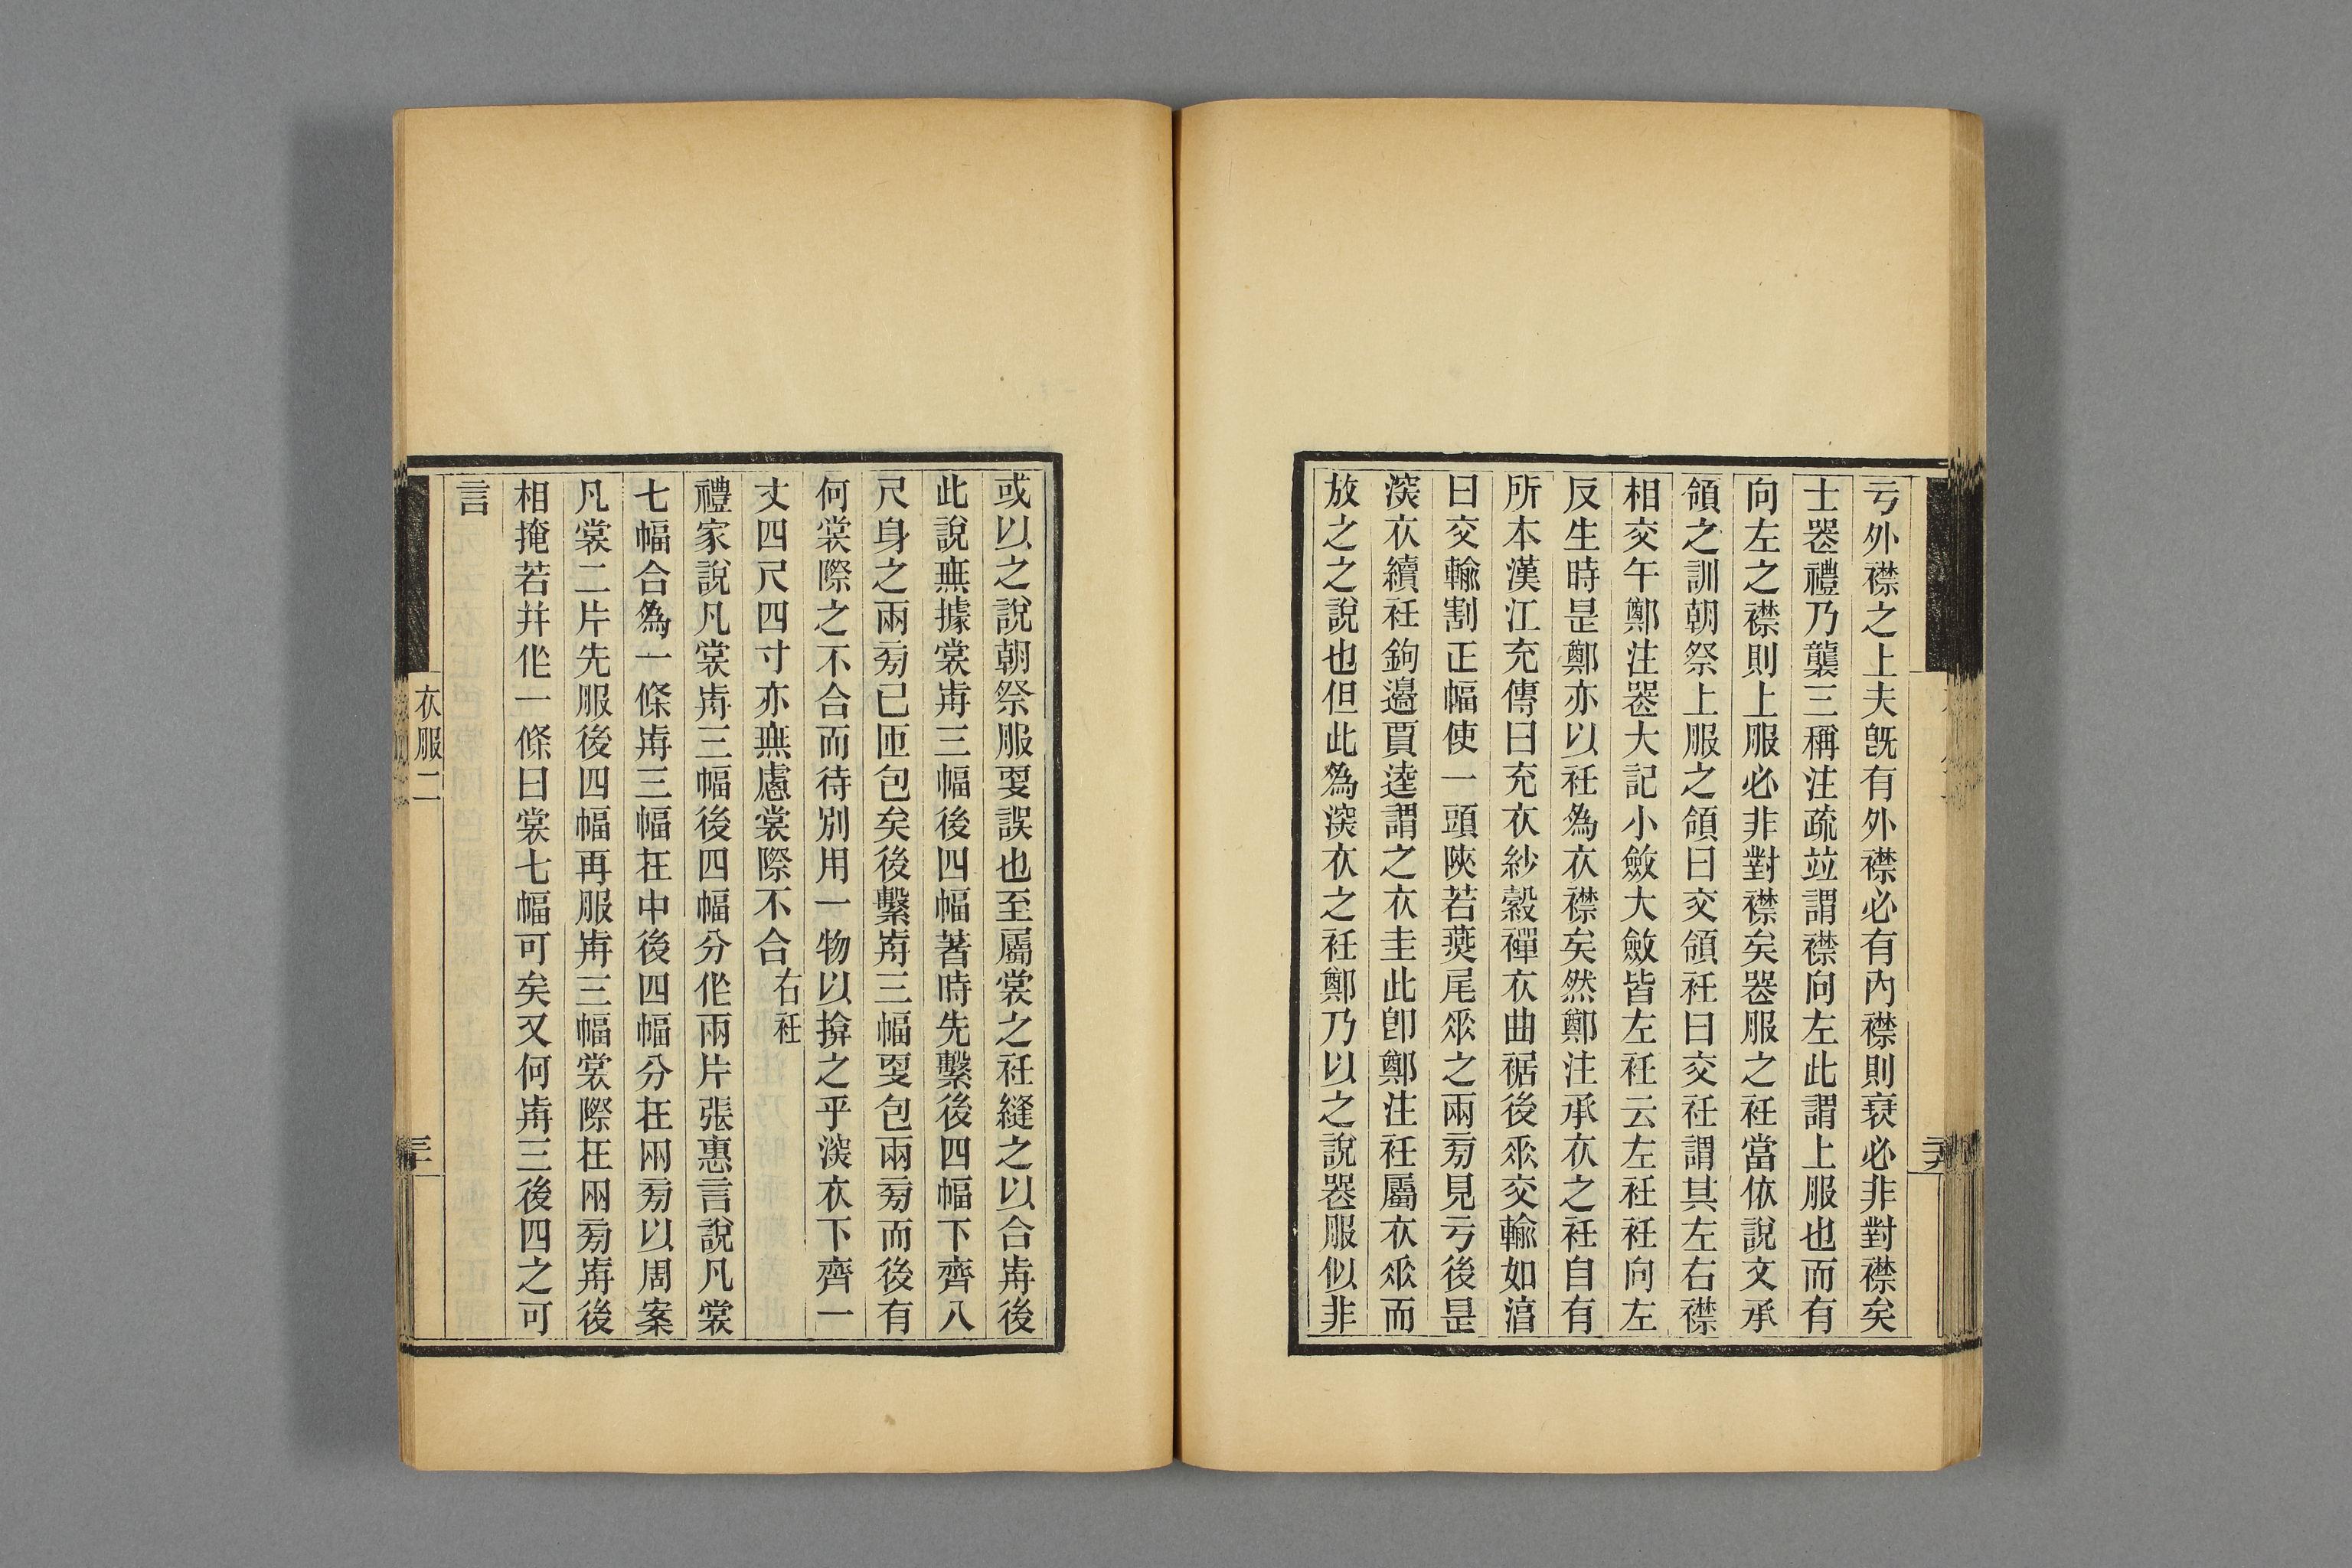 亏外襟之上夫旣有外襟必有內襟則衰必非對襟矣
士喪禮乃襲三稱注疏竝謂襟向左此謂上服也而有
向左之襟則上服必非對襟矣喪服之衽當依說文承
領之訓朝祭上服之領曰交領衽曰交衽謂其左右襟
相交午鄭注喪大記小斂大斂皆左衽云左衽衽向左
反生時是鄭亦以衽爲衣襟矣然鄭注承衣之衽自有
所本漢江充傳曰充衣紗縠襌衣曲裾後垂交輸如淳
曰交輸割正幅使一頭陜若燕尾垂之兩旁見亏後是
深衣續衽鉤邊賈逵謂之衣圭此卽鄭注衽屬衣垂而
放之之說也但此爲深衣之衽鄭乃以之說喪服似非
或以之說朝祭服更誤也至屬裳之衽縫之以合歬後
此說無據裳歬三幅後四幅著時先繫後四幅下齊八
尺身之兩旁已匝包矣後繫歬三幅更包兩旁而後有
何裳際之不合而待別用一物以揜之乎深衣下齊一
丈四尺四寸亦無慮裳際不合右衽
禮家說凡裳歬三幅後四幅分作兩片張惠言說凡裳
七幅合爲一條歬三幅在中後四幅分在兩旁以周案
凡裳二片先服後四幅再服歬三幅裳際在兩旁歬後
相掩若并作一條曰裳七幅可矣又何歬三後四之可
言
衣服二
三十